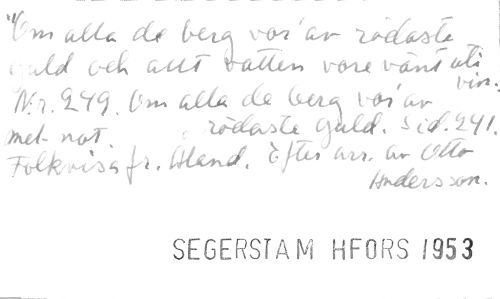 "Om alla de berg vor' av rödaste
guld och allt vatten vore vänt uti
vin.
N:r. 249. Om alla de berg vor' av
met. not. rödaste guld. Sid. 241.
Folkvisa fr. Åland. Efter arr. av Otto
Andersson.
SEGERSTAM HFORS 1953